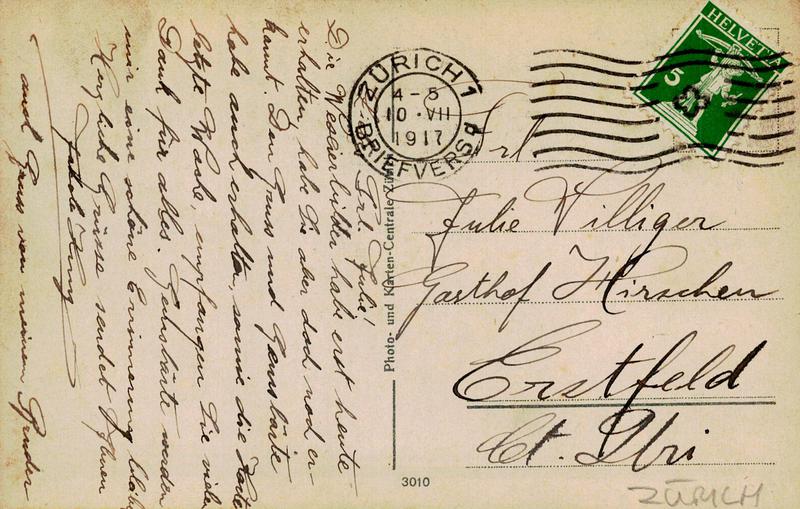 HELVETIA
5
ZÜRICH 1
4-5
10·VII
1917
BRIEFVERSd
Frl
Julie Villiger
Gasthof Hirschen
Erstfeld
Ct. Uri
ZÜRICH
3010
Photo- und Karten-Centrale Zür
Frl. Julie!
Die habe erst heute
erhalten, habe Sie aber doch noch er-
kannt. Den Gruss und
habe auch erhalten, sowie die Karte
letzte Woche, empfangen Sie vielen
Dank für alles. werden
mir eine schöne Erinnerung
Herzliche Grüsse sendet Ihnen
und Gruss von meinem Bruder